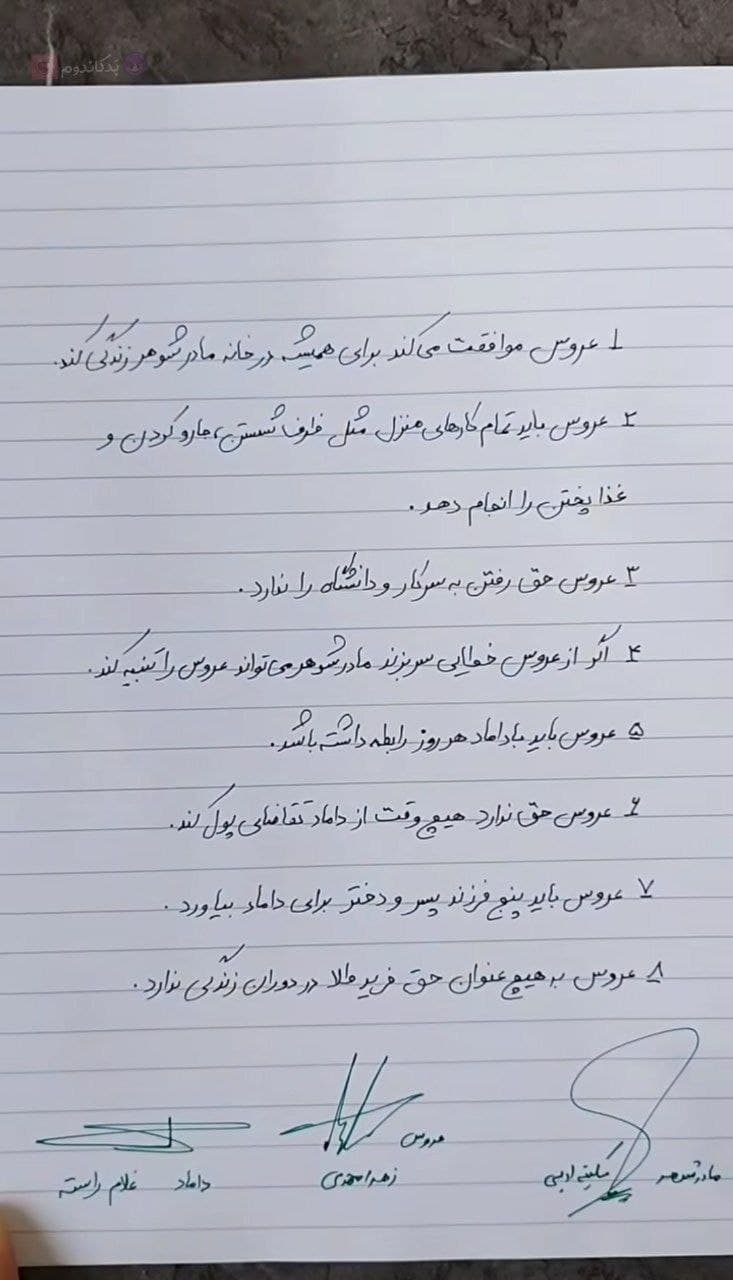 پدکاندوم
۱ عروس موافقت می‌کند برای همیشه در خانه مادر شوهر زندگی کند.
۲ عروس باید تمام کارهای منزل مثل ظرف شستن، جارو کردن و
غذا پختن را انجام دهد.
۳ عروس حق رفتن به سرکار و دانشگاه را ندارد.
۴ اگر از عروس خطایی سر بزند مادر شوهر می‌تواند عروس را تنبیه کند.
۵ عروس باید با داماد هر روز رابطه داشته باشد.
۶ عروس حق ندارد هیچ وقت از داماد تقاضای پول کند.
۷ عروس باید پنج فرزند پسر و دختر برای داماد بیاورد.
۸ عروس به هیچ عنوان حق خرید طلا در دوران زندگی ندارد.
مادرشوهر سکینه ادبی
عروس
زهرا محمدی
داماد غلام راسته